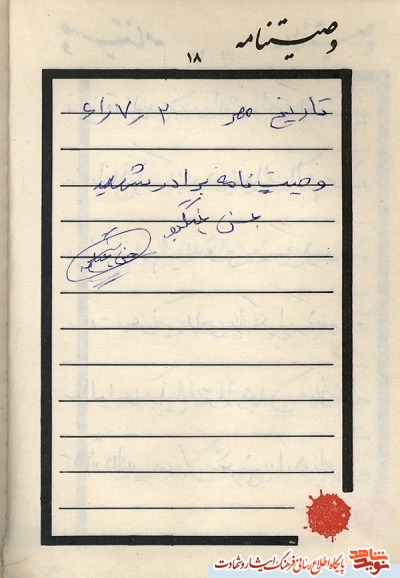 وصیتنامه
۱۸
تاریخ مهر ۲ ر۷ر۶
وصیت نامه برادر شهید
نوید شاهد
پایگاه اطلاع رسانی فرهنگ ایثار و شهادت